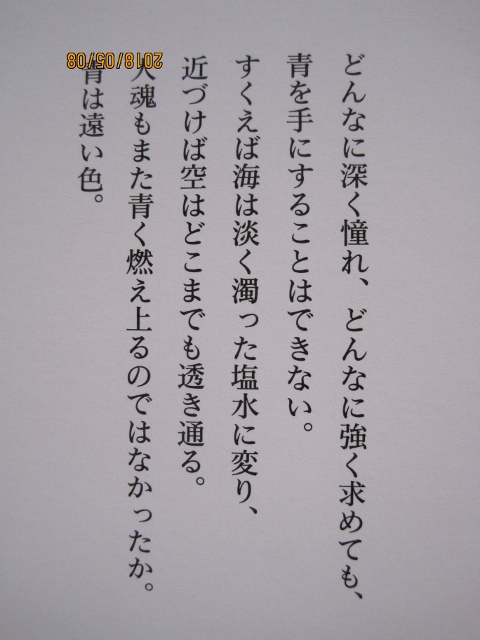 どんなに深く憧れ、どんなに強く求めても、
青を手にすることはできない。
すくえば海は淡く濁った塩水に変り、
近づけば空はどこまでも透き通る。
人魂もまた青く燃え上るのではなかったか。
青は遠い色。
2018/05/08